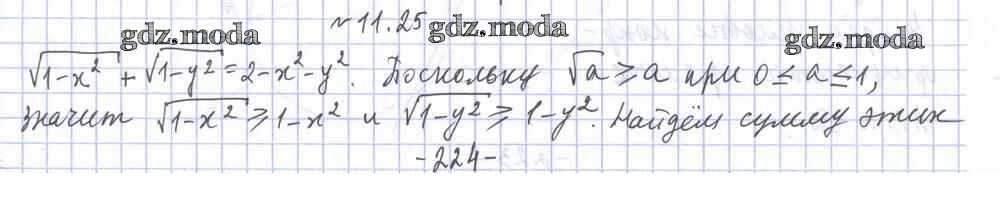 № 11.25
gdz.moda gdz.moda gdz.moda
√1-x² + √1-y² = 2-x²-y². Поскольку √a ≥ a при 0 ≤ a ≤ 1,
значит √1-x² ≥ 1-x² и √1-y² ≥ 1-y². Найдём сумму этих
-224-